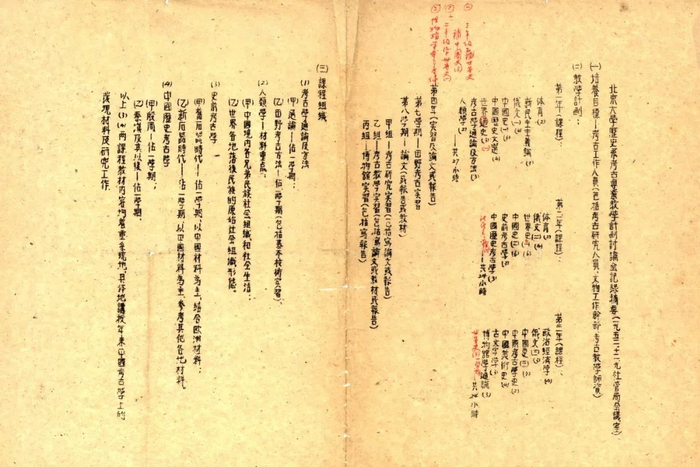 北京大学歷史系考古專業教學計划討論会記录摘要(一九五二·十二·九社管局会議室)
(一) 培養目標—考古工作人員(包括考古研究人員·文物工作幹部·考古教學師資)
(二) 教學計划:
第一年(課程):
体育(2)
新民主主義論(3)
俄文(一)(4)
中國歷史文選(4)
中國歷史(3)
世界通史(3)
考古學通論及方法(3)
人類學(2)
共27小時
第二年(課程):
体育(2)
俄文(二)(4)
世界史(3)
中國史(二)
史前考古學(3)
中國歷史考古學(3)
共24小時
第三年(課程):
政治經濟學(4)
俄文(三)(4)
中國史(三)(3)
中國考古學史(2)
中國美術史(4)
古文字學(3)
博物館學通論(3)
共24小時
第四年(實習及論文或報告)
第七學期—田野考古實習
第八學期—論文(或報告或教材)
甲組—考古研究實習(包括寫論文或報告)
乙組—考古教學實習(包括寫論文或教材或報告)
丙組—博物館實習(包括寫報告)
(三) 課程組織
(1) 考古學通論及方法
(甲) 通論—佔一學期;
(乙) 田野考古方法—佔一學期(包括基本技術實習);
(2) 人類學—材料重点:
(甲) 中國境內各兄弟民族社会組織和社会生活;
(乙) 世界各地落後民族的原始社会組織形態。
(3) 史前考古學—
(甲) 舊石器時代—佔一學期;以中國材料為主,結合歐洲材料;
(乙) 新石器時代—佔一學期,以中國材料為主,參考其他各地材料。
(4) 中國歷史考古學
(甲) 殷周—佔一學期;
(乙) 秦漢及其以後—佔一學期;
以上(3)(4)兩課程教材內容均着重系統地、具体地講授年來中國考古學上的
發現材料及研究工作。